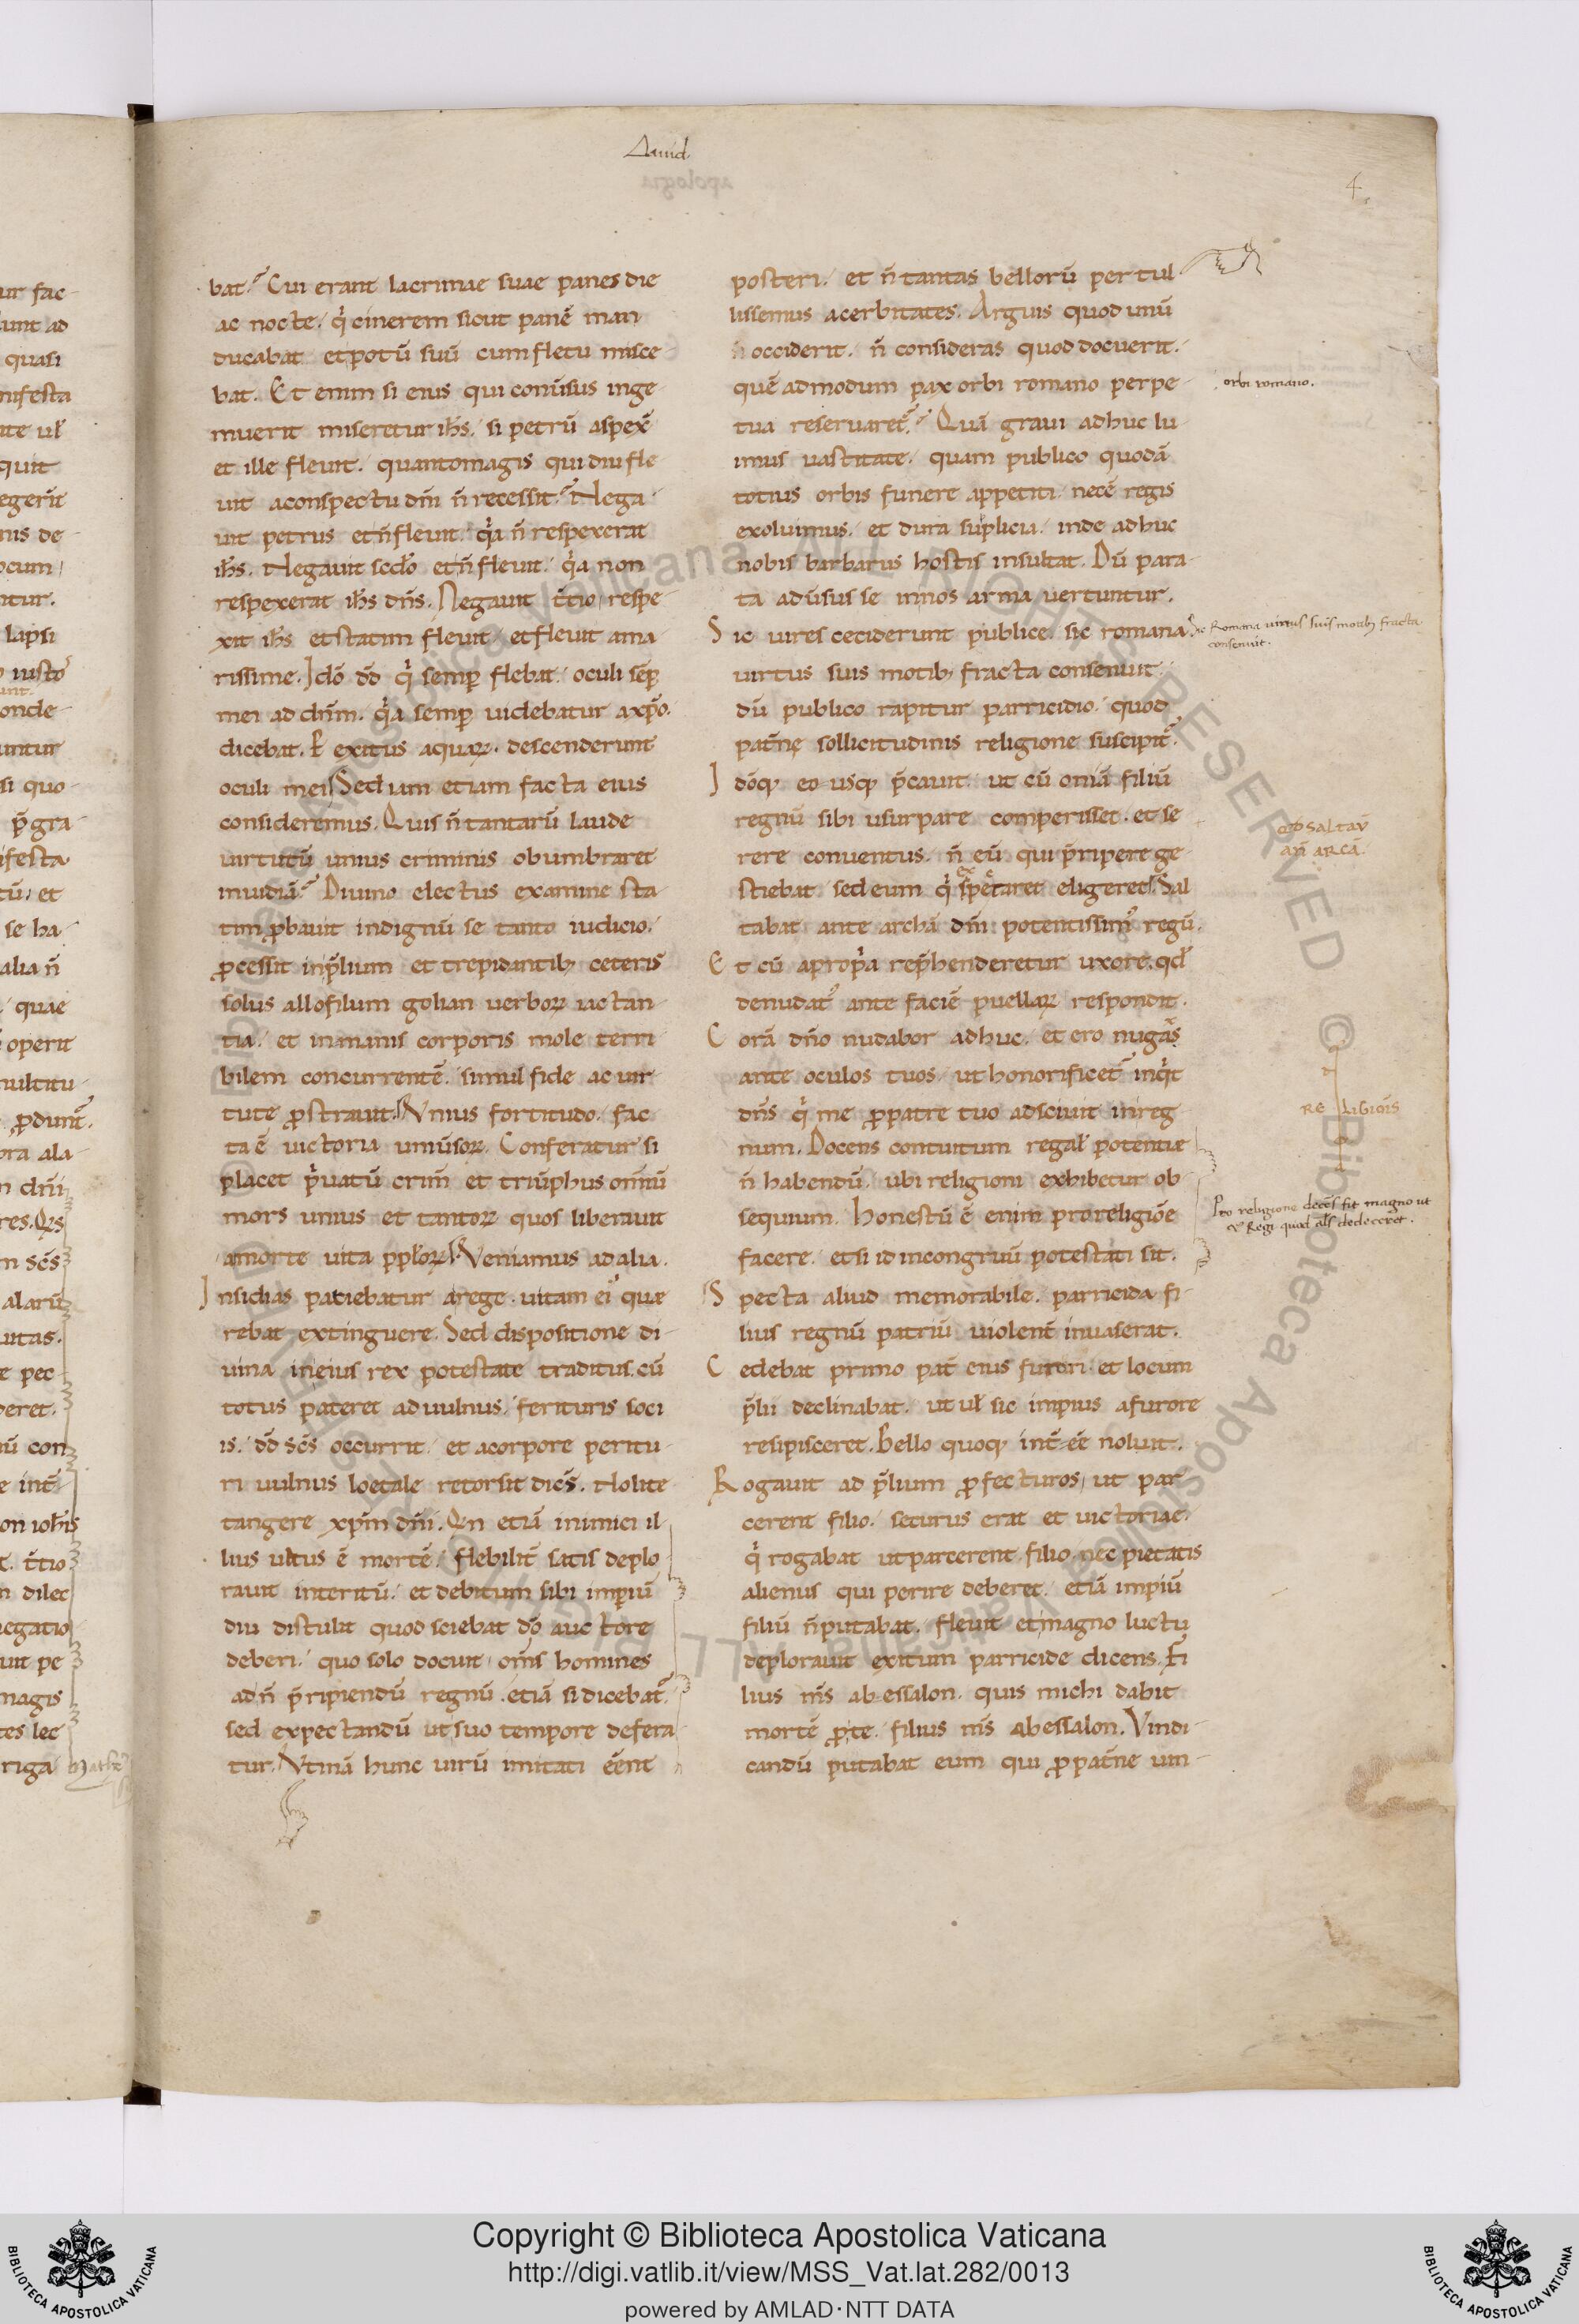 Dauid.
4
bat? Cui erant lacrimae suae panes die
ac nocte. q̇ cinerem sicut panē man
ducabat et potū suū cum fletu misce-
bat. Et enim si eius qui conūsus inge-
muerit miseretur ihs̄. si petrū aspex̄
et ille fleuit. quantomagis qui diu fle-
uit aconspectu dn̄i n̄ recessit? Nega-
uit petrus et n̄ fleuit. q̇a n̄ respexerat
ihs̄. Negauit secdo et n̄ fleuit. q̇a non
respexerat ihs̄ dn̄s. Negauit t̄tio respe-
xit ihs̄ et statim fleuit. et fleuit ama-
rissime. Ido dd̄ q̇ semꝑ flebat. oculi semꝑ
mei ad dn̄m. q̇a semꝑ uidebatur a xp̄o.
dicebat. & exitus aquaꝝ. descenderunt
oculi mei. Sed iam etiam facta eius
consideremus. Quis n̄ tantarū laude
uirtutū unius criminis obumbraret
inuidiā? Diuino electus examine sta-
tim ꝓbauit indignū se tanto iudicio.
ꝓcessit inp̄lium et trepidantibꝫ ceteris
solus allofilum golian uerboꝝ iactan-
tia. et inmanis corporis mole terri-
bilem concurrentē. simul fide ac uir-
tute ꝓstrauit. Vnius fortitudo. fac-
ta ē uictoria uniūsoꝝ. Conferatur si
placet ṗuatū crim̄ et triūphus omniū
mors unius et tantoꝝ quos liberauit
amorte uita ppl̄oꝝ. Veniamus ad alia.
Insidias patiebatur arege. uitam ei' quae
rebat extinguere. Sed dispositione di-
uina ineius rex potestate traditus. cū
totus pateret ad uulnus. ferituris soci
is. dd̄ sc̄s occurrit. et acorpore peritu-
ri uulnus loetale retorsit dicēs. Nolite
tangere xpm̄ dn̄i. Qn etiā inimici il-
lius ultus ē mortē. flebilit̄ satis deplo
rauit interitū. et debitum sibi imꝑiū
diu distulit quod sciebat do auctore
deberi. quo solo docuit om̄s homines
ad n̄ p̄ripiendū regnū. etiā si dicebat̄.
sed expectandū ut suo tempore defera-
tur. Vtinā hunc uirū imitati eēnt
posteri. et n̄ tantas bellorū pertul
lissemus acerbitates. Arguis quod unū
n̄ occiderit. n̄ consideras quod docuerit.
quē admodum pax orbi romano perpe-
tua reseruaret̄? Quā graui adhuc lu-
imus uastitate. quam publico quodā
totius orbis funere appetiti necē regis
exoluimus. et dura suplicia. inde adhuc
nobis barbarus hostis insultat. Dū para-
ta adūsus se innos arma uertuntur.
Sic uires ceciderunt publice. sic romana
uirtus suis motibꝫ fracta consenuit.
dū publico rapitur parricidio. quod
pat̄nę sollicitudinis religione suscipit̄.
Idōqꝫ eo usqꝫ p̄cauit. ut cū oniā filiū
regnū sibi usurpare comperisset. et se
rere conuentus. n̄ eū qui p̄ripere ge-
stiebat sed eum q̇ spectaret eligeret. Sal
tabat ante archā dn̄i potentissim' regū.
Et cū apropa rep̄henderetur uxore. qd̄
denudat' ante faciē puellaꝝ respondit.
Corā dn̄o nudabor adhuc. et ero nugax
ante oculos tuos ut honorificet̄ inq̇t
dn̄s q̇ me ꝓ patre tuo adsciuit inreg
num. Docens contuitum regal̄ potentiæ
n̄ habendū. ubi religioni exhibetur ob-
sequium. Honestū ē enim proreligiōe
facere. etsi id incongruū potestati sit.
Specta aliud memorabile. parricida fi-
lius regnū patriū uiolent̄ inuaserat.
Cedebat primo pat̄ eius furori et locum
p̄lii declinabat. ut ul̄ sic impius afurore
resipisceret. Bello quoqꝫ int̄-eē noluit.
Rogauit ad p̄lium ꝓfecturos, ut par
cerent filio. securus erat et uictoriae.
q̇ rogabat ut parcerent filio. nec pietatis
alienus qui perire deberet. etiā impiū
filiū n̄ putabat. fleuit et magno luctu
deplorauit exitum parricide dicens. Fi
lius m̄s ab-essalon. quis michi dabit
mortē ꝓ te. filius m̄s abessalon. Vindi-
candū putabat eum qui ꝓ pat̄ne um-
orbi romano.
Sic Romana uirtus suis motibꝫ fracta
consenuit.
saltauit
an̄ arcā
RE LIGIOIS
Pro religione decēs fit magno ut
& Regi quod al̄s dedeceret.
Copyright © Biblioteca Apostolica Vaticana
http://digi.vatlib.it/view/MSS_Vat.lat.282/0013
powered by AMLAD·NTT DATA
BIBLIOTECA APOSTOLICA VATICANA
BIBLIOTECA APOSTOLICA VATICANA